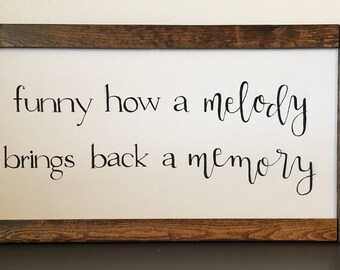 funny how a melody
brings back a memory